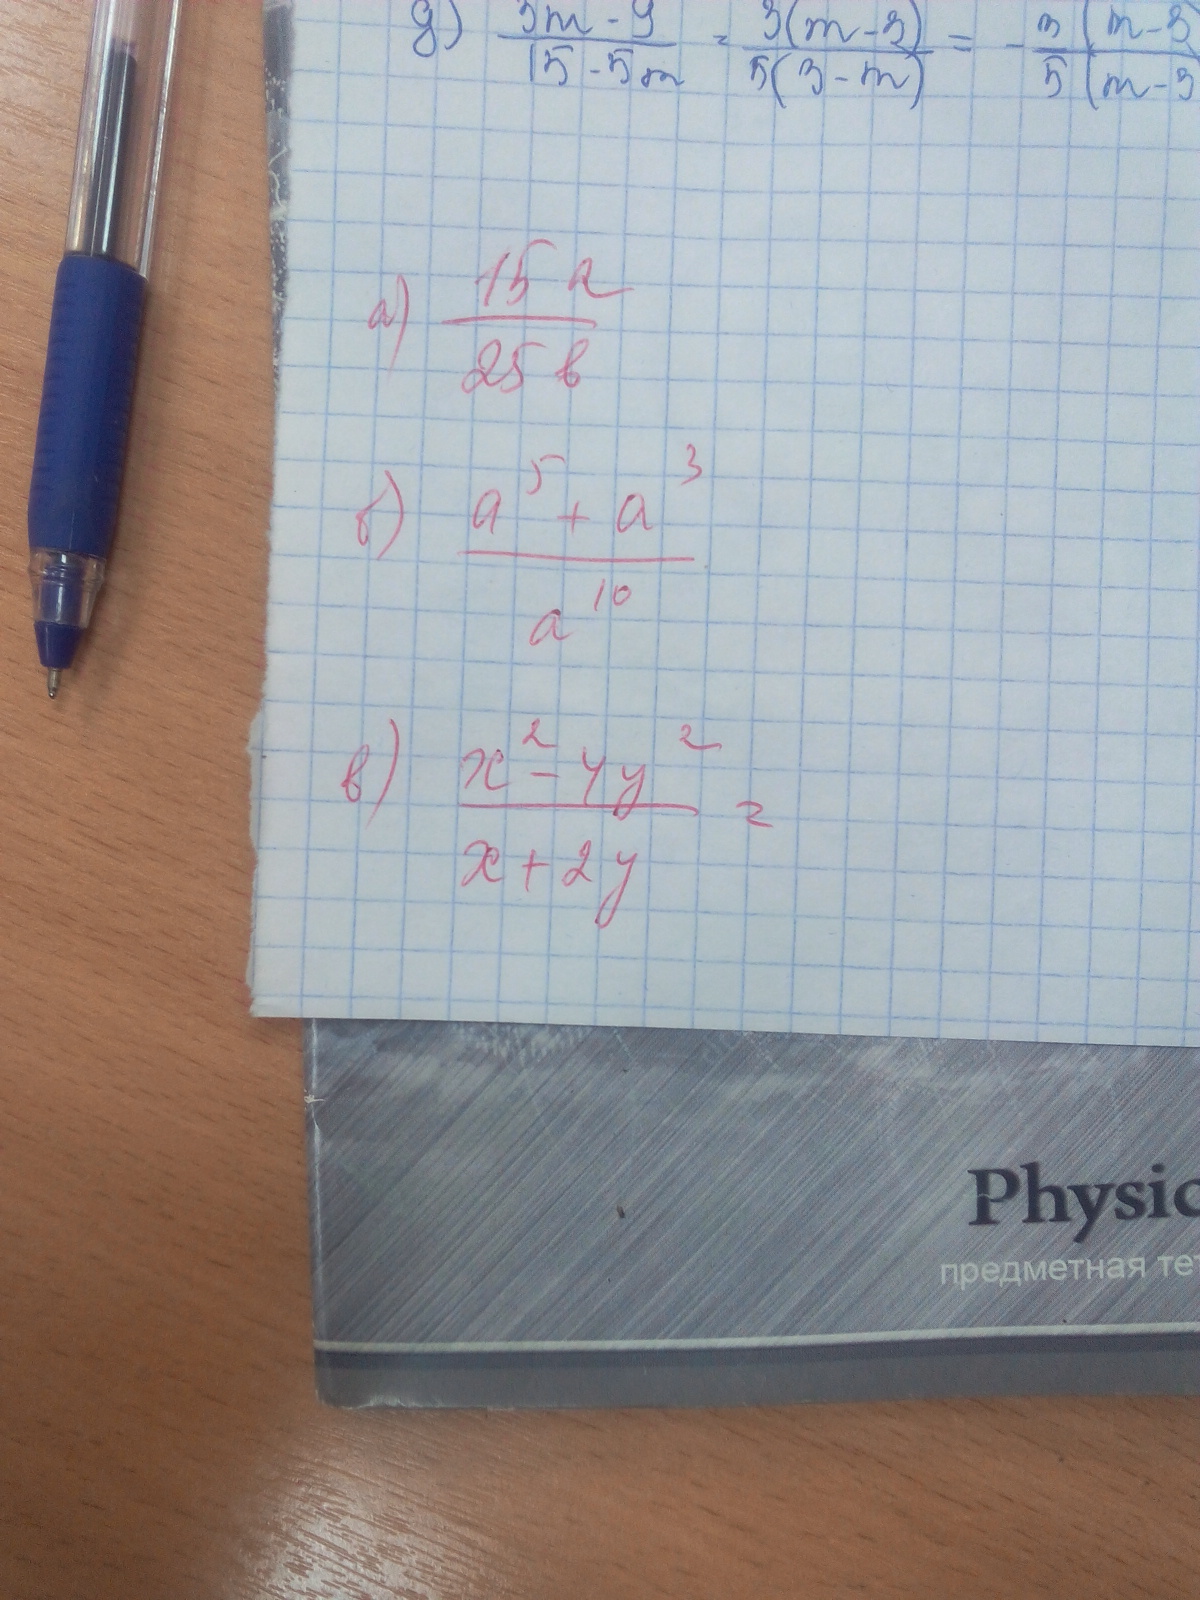 д) 3m - 9 / 15 - 5m = 3(m - 3) / 5(3 - m) = - 3 (m - 3 / 5 (m - 3
а) 15 a / 25 в
б) a⁵ + a³ / a¹⁰
в) x² - 4y² / x + 2y =
Physic
предметная тет